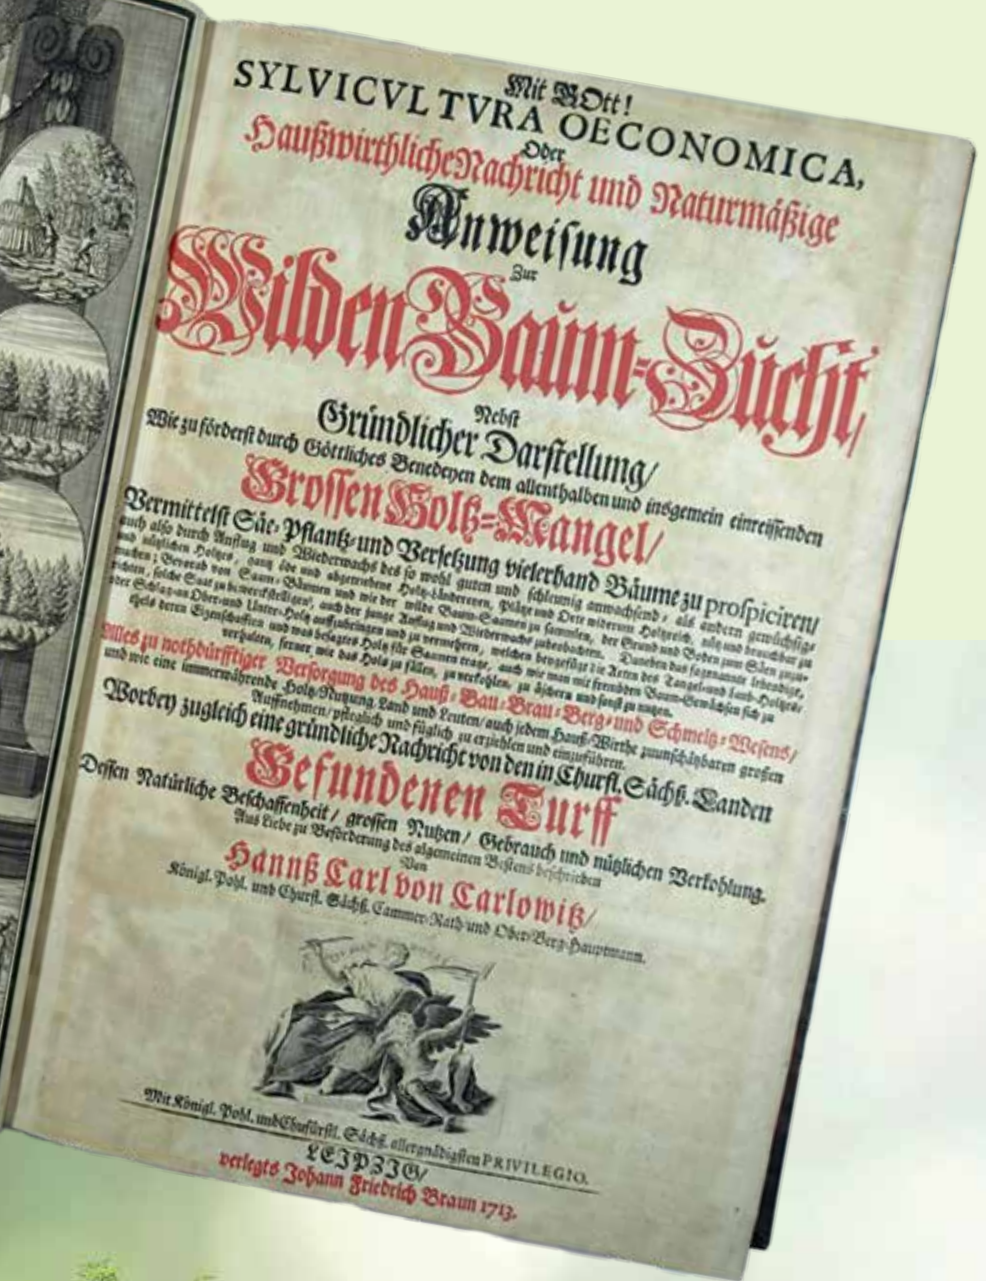 Mit GOtt!
SYLVICVLTVRA OECONOMICA,
Oder
Haußwirthliche Nachricht und Naturmäßige
Anweisung
Zur
Wilden Baum-Zucht,
Nebst
Gründlicher Darstellung/
Wie zu förderst durch Göttliches Benedeyen dem allenthalben und insgemein einreissenden
Grossen Holtz-Mangel/
Vermittelst Säe- Pflantz- und Versetzung vielerhand Bäume zu prospiciren/
auch also durch Anflug und Wiederwachs des so wohl guten und schleunig anwachsend, als andern gewüchsig-
und nützlichen Holtzes, gantz öde und abgetriebene Holtz-Ländereyen, Plätze und Orte widerum Holtzreich, nütz und brauchbar zu
machen; Bevorab von Saam-Bäumen und wie der wilde Baum-Saamen zu sammlen, der Grund und Boden zum Säen zuzu-
richten, solche Saat zu bewerckstelligen, auch der junge Anflug und Wiederwachs zu beobachten. Daneben das sogenannte lebendige,
oder Schlag-an Ober- und Unter-Holtz auffzubringen und zu vermehren, welchen beygefügt die Arten des Tangel- und Laub-Holtzes,
theils deren Eigenschafften und was besagtes Holtz für Saamen trage, auch wie man mit frembden Baum-Gewächsen sich zu
verhalten, ferner wie das Holtz zu fällen, zu verkohlen, zu äschern und sonst zu nutzen.
Alles zu nothdürfftiger Versorgung des Hauß-Bau-Brau-Berg- und Schmeltz-Wesens/
und wie eine immerwährende Holtz-Nutzung, Land und Leuten/ auch jedem Hauß-Wirthe zu unschätzbaren großen
Auffnehmen/ pfleglich und füglich zu erziehlen und einzuführen.
Worbey zugleich eine gründliche Nachricht von den in Churfl. Sächß. Landen
Gefundenen Turff
Dessen Natürliche Beschaffenheit/ grossen Nutzen/ Gebrauch und nützlichen Verkohlung.
Aus Liebe zu Beförderung des algemeinen Bestens beschrieben
Von
Hannß Carl von Carlowitz/
Königl. Pohl. und Churfl. Sächß. Cammer-Rath und Ober-Berg-Hauptmann.
Mit Königl. Pohl. und Chufürstl. Sächß. allergnädigsten PRIVILEGIO.
LEIPZIG/
verlegts Johann Friedrich Braun 1713.